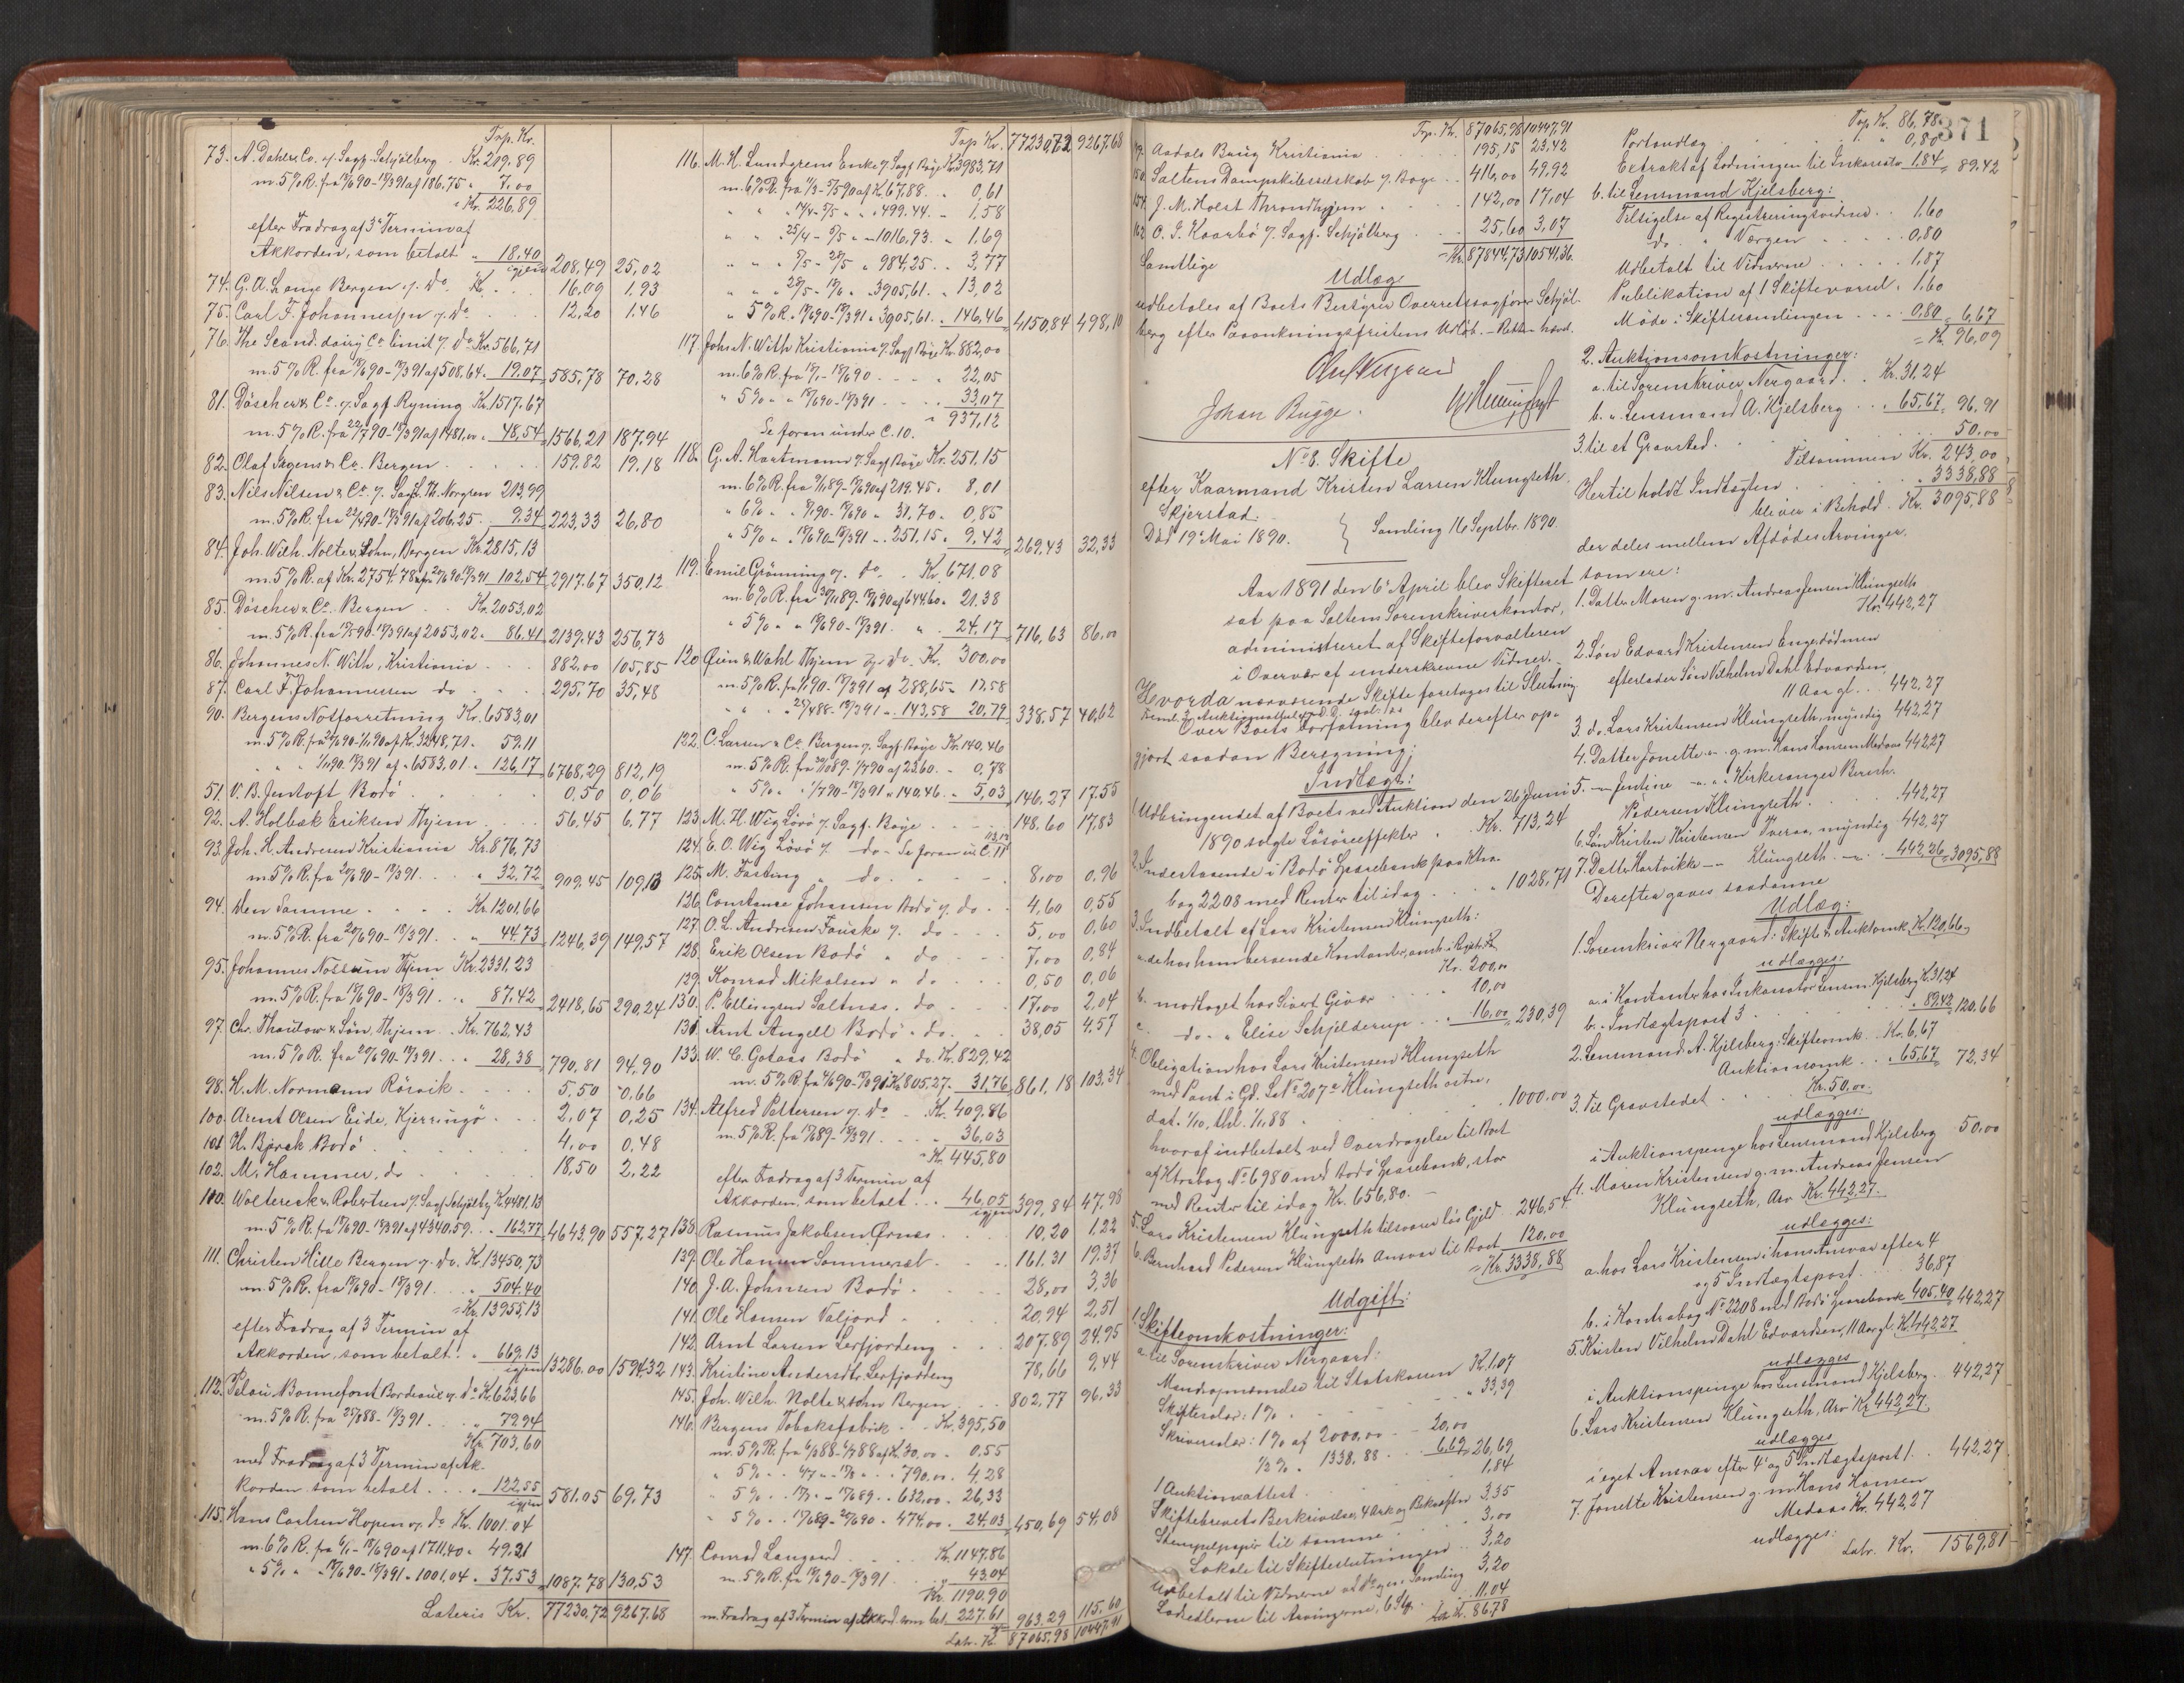 Trp. Kr.
73. A. Dahl & Co. v. Sagf. Schjölberg . Kr. 219.89
m. 5% R. fra 18/6 90 - 18/3 91 af 186.75 " 7,00
" Kr. 226.89
efter Fradrag af 3die Termin af
Akkorden, som betalt " 18,40
igjen 208,49 25,02
74. G. A. Lange Bergen v. do. Kr. . . 16,09 1.93
75. Carl F. Johannessen v. do . . . 12,20 1.46
76. The Scand. dairy Co. limit v. do Kr. 566,71
m. 5% R. fra 18/6 90 - 18/3 91 af 508,64. 19.07 585,78 70,28
81. Döscher & Co. v. Sagf. Ryning Kr. 1517.67
m. 5% R. fra 22/7 90 - 18/3 91 af 1481,00 " 48,54 1566,21 187.94
82. Olaf Irgens & Co. Bergen . . . . 159.82 19.18
83. Nils Nilsen & Co. v. Sagf. Th. Norgren 213,99
m. 5% R. fra 22/4 90 - 18/3 91 af 206.25 . 9.34 223,33 26,80
84. Joh. Wilh. Nolte & Sohn, Bergen Kr. 2815,13
m. 5% R. af Kr. 2754.78 fra 20/6 90 - 18/3 91 102,54 2917.67 350,12
85. Döscher & Co. Bergen . . Kr. 2053,02
m. 5% R. fra 18/5 90 - 18/3 91 af 2053,02 " 86.41 2139.43 256,73
86. Johannes N. With, Kristiania . . . 882.00 105,85
87. Carl F. Johannessen do . . . 295.70 35,48
90. Bergens Notforretning Kr. 6583,01
m. 5% R. fra 24/6 90 - 1/11 90 af Kr. 3248,71 " 59.11
" " 1/11 90 - 18/3 91 af " 6583,01 " 126,17 6768,29 812,19
51. V. B. Jentoft Bodö . . . . 0,50 0,06
92. A. Holbæk Eriksen Thjem . . . 56.45 6.77
93. Joh. H. Andresen Kristiania Kr. 876,73
m. 5% R. fra 20/6 90 - 18/3 91 . . . " 32.72 909.45 109,13
94. Den Samme . . . . Kr. 1201.66
m. 5% R. fra 20/6 90 - 18/3 91 . . " 44.73 1246,39 149,57
95. Johannes Nossum Thjem Kr. 2331,23
m. 5% R. fra 18/6 90 - 18/3 91 . . . 87.42 2418,65 290,24
97. Chr. Thaulow & Søn, Thjem . Kr. 762,43
m. 5% R. fra 20/6 90 - 18/3 91 . . . 28,38 790,81 94.90
98. H. M. Normann Rörvik . . . . 5,50 0,66
100. Arent Olsen Eide, Kjerringö . . . 2,07 0,25
101. H. Bjerk Bodö . . . . 4,00 0,48
102. M. Hammer, do . . . . 18,50 2,22
Woltereck & Robertson v. Sagf. Schjölberg Kr. 4481,13
m. 5% R. fra 18/6 90 - 18/3 91 af 4340.59 . . 162.77 4643.90 557,27
111. Christen Hille Bergen v. do. Kr. 13450,73
m. 5% R. fra 18/6 90 - 18/3 91 . . " 504.40
" Kr. 13955,13
efter Fradrag af 3 Termin af
Akkorden, som betalt . " 669,13
igjen 13286.00 1594,32
112. Pelou Bonnefont Bordeaux v. do Kr. 623,66
m. 5% R. fra 25/8 88 - 18/3 91 . . . " 79.94
Kr. 703,60
med Fradrag af 3 Termin af Ak-
korden som betalt . . . " 122.55
igjen 581.05 69,73
115. Hans Carlsen Hopen v. do. Kr. 1001.04
m. 6% R. fra 6/1 - 18/6 90 af 1711,40 " 49.21
" 5% " " 18/6 90 - 18/3 91 " 1001,04 " 37.53 1087.78 130,53
Lateris Kr. 77230,72 9267.68
Trp. Kr. 77230,72 9267,68
116. M. H. Lundgrens Enke v. Sagf. Böye Kr. 3983,71
m. 6% R. fra 11/3 - 5/5 90 af Kr. 67,88 . . 0,61
" " " 14/4 - 5/5 " " 499.44 . - 1,58
" " 25/4 - 5/5 " " 1016,93 . " 1,69
" " " 5/5 - 28/5 " 984,25 . . 3,77
" " " 28/5 - 18/6 " 3905,61 . " 13,02
" 5% R. " 18/6 90 - 18/3 91 " 3905,61 . " 146,46 4150,84 498,10
117. Johs N. With Kristiania v. Sagf. Böye Kr. 882,00
m. 6% R. fra 18/1 - 18/6 90 . . . . " 22,05
" 5% " " 18/6 90 - 18/3 91 . . . . 33,07
" 937,12
Se foran under C. 10.
118. G. A. Hartmann v. Sagf. Böye Kr. 251.15
m. 6% R. fra 9/11 89 - 18/6 90 af 219.45 . 8,01
" 6% " " 9/1 90 - 18/6 90 " 31,70 " 0,85
" 5% " " 18/6 90 - 18/3 91 " . 251.15 " 9,42 269.43 32,33
119. Emil Grönning v. do. . Kr. 671.08
m. 6% R. fra 30/11 89 - 18/6 90 af 644.60 " 21.38
" 5% " " 18/6 90 - 18/3 91 . " . 24,17 716,63 86,00
120. Øien & Wahl Thjem v. do. Kr. 300,00
m. 5% R. fra 1/1 90 - 18/3 91 af 288,65 " 17.58
" " . " 25/4 88 - 18/3 91 " . 143,58 20,79 338.57 40,62
122. C. Larsen & Co. Bergen v. Sagf. Böye Kr. 140,46
m. 5% R. fra 30/10 89 - 1/7 90 af 23.60 . - 0,78
" 5% " . " 1/7 90 - 18/3 91 " 140.46 . " 5,03 146,27 17.55
123. M. H. Wig Lövö v. Sagf. Böye . . . . 148.60 17,83
124. E. O. Wig Lövö v. - do - Se foran u. C. 11
125. M. Fasting " . do . . - 8,00 0,96
126. Constance Johansen Bodö v. do . . 4,60 0,55
127. O. L. Andresen Fauske v. do . . . 5,00 0,60
128. Erik Olsen Bodö " do . . . 7,00 0,84
129. Konrad Mikalsen " do . . . 0,50 0,06
130. P. Ellingsen Saltnes . do . . 17,00 2,04
131. Arnt Angell Bodö " do . . 38,05 4,57
133. W. C. Gotaas Bodö " do. Kr. 829,42
m. 5% R. fra 4/6 90 - 18/3 91 af Kr. 805,27 . 31,76 861,18 103,34
134. Alfred Pettersen v. do . . Kr. 409,86
m. 5% R. fra 18/6 89 - 18/3 91 . . . . " 36,03
" Kr. 445,80
efter Fradrag af 3 Termin af
Akkorden, som betalt . . . 46,05
igjen 399,84 47,98
138. Rasmus Jakobsen Ørnes . . . . 10,20 1,22
139. Ole Hansen Sommerset . . . . 161.31 19,37
140. J. A. Johnsen Bodö . . . . 28,00 3,36
141. Ole Hansen Valjord . . . . 20,94 2,51
142. Arnt Larsen Lerfjordeng . . . 207.89 24.95
143. Kristine Andersdtr Lerfjordeng 78,66 9,44
145. Joh. Wilh. Nolte & sohn Bergen . . . 802,77 96.33
146. Bergens Tobaksfabrik . . Kr. 395,50
m. 5% R. fra 6/1 88 - 4/7 88 af Kr. 30,00 . 0,55
" 5% . . 4/7 " - 17/8 " . . 790,00 . 4,28
" 5% . . 17/8 " - 18/6 89 . . 632,00 . 26,33
" 5% . . 18/6 89 - 20/6 90 . 474,00 . 24,03 450,69 54,08
147. Conrad Langaard . . . Kr. 1147,86
m. 5% R. fra 18/6 90 - 18/3 91 . . . 43.04
Kr. 1190.90
m. Fradrag af 3 Termin af Akkord. som bet. 227.61 963.29 115.60
Latr. Kr. 87065.98 10447.91
Trp. Kr. 87065,98 10447,91
Aadals Brug Kristiania . . . . 195,15 23.42
Saltens Dampskibsselskab v. Böye . . 416,00 49,92
J. M. Holst Throndhjem . . . . 142,00 17,04
O. J. Kaarbö v. Sagf. Schjölberg . . 25,60 3,07
= Kr. 87844,73 10541,36.
Samtlige
Udlæg
udbetales af Boets Bestyrer Overretssagfører Schjöl-
berg efter Paaankningsfristens Udløb. - Retten hævet.
Johan Bugge.
No 8. Skifte
efter Kaarmand Kristen Larsen Klungseth
Skjerstad.
Död 19de Mai 1890. } Samling 16 Septbr. 1890.
Aar 1891 den 6te April blev Skifteret
sat paa Saltens Sorenskriverkontor,
administreret af Skifteforvalteren
i Overvær af underskrevne Vidner.
Hvorda nærværende Skifte foretoges til Slutning.
Over Boets Forfatning blev derefter op-
gjort saadan Beregning:
Indtægt:
1. Udbringendet af Boets ved Auktion den 26 Juni
1890 solgte Lösöreeffekter " . Kr. 713,24
2. Indestaaende i Bodö Sparebank paa Ktra-
bog 2208 med Renter til idag . . . " 1028,71
3. Indbetalt af Lars Kristensen Klungseth:
a. de hos ham beroende Kontanter, anmk. i Registr.
Kr. 200,00
b. modtaget hos Sivert Givær . . . . 10,00
c. do - " Elise Schjelderup . . . " 16,00 = 230,39
4. Obligation hos Lars Kristensen Klungseth
med Pant i Gd. L. No 207a Klungseth østre,
dat. 1/10, thl. 1/11 88 . . . . 1000.00
hvoraf indbetalt ved Overdragelse til Boet
af Ktrabog No 6980 med Bodö Sparebank, stor
med Renter til idag Kr. 656,80. -
5. Lars Kristensen Klungseth tilsvarer løs Gjeld . 246,54
6. Bernhard Pedersen Klungseth Ansvar til Boet 120,00
= Kr. 3338,88
Udgift:
1. Skifteomkostninger:
a. til Sorenskriver Nergaard:
Mandsopnævnelse til Statskassen Kr. 1.07
Skiftesalær: 1% . . . . " 33,39
Skriversalær: 1% af 2000,00 - - 20,00
1/2% " 1338,88 - - 6.69 26,69
1 Auktionsattest . . . . 1,84
Skiftebrevets Beskrivelse, 4 Ark og Bekræftn 3,35
Stempelpapir til samme . . . 3,00
Lokale til Skifteslutningen . . 3,20
Udbetalt til Vidnerne ved begge Samling 3,20
Lodsedlerne til Arvingerne, 6 Stkr. . . 11.04
Lat. Kr. 86.78
371
Trp. Kr. 86,78
Portoudlæg . . . . 0,80
Extrakt af Lodningen til Inkassator 1.84 = 89.42
b. til Lensmand Kjelsberg:
Tilsigelse af Registreringsvidner . . 1.60
do. " Værgen . . . . . 0,80
Udbetalt til Vidnerne . . . . . 1.87
Publikation af 1 Skiftevarsel . 1.60
Møde i Skiftesamlingen . . . . 0,80 = 6,67
= Kr. 96,09
2. Auktionsomkostninger:
a. til Sorenskriver Nergaard . . Kr. 31,24
b. " Lensmand A. Kjelsberg . . . 65,67 = 96.91
3. til et Gravsted . . . . . 50,00
Tilsammen Kr. 243,00
Hertil holdt Indtægten . . . " 3338,88
bliver i Behold . Kr. 3095,88
der deles mellem Afdødes Arvinger,
som ere:
1. Datter Maren g. m. Andreas Jensen Klungseth
Kr. 442,27
2. Søn Edvard Kristensen Enge, död men
efterlader Søn Vilhelm Dahl Edvardsen,
11 Aar gl. . . 442,27
3. do. Lars Kristensen Klungseth, myndig 442,27
4. Datter Jonette - " - g. m. Hans Hansen Medaas 442,27
5. - " - Jentine - " - " Kirkesanger Bernh.
Pedersen Klungseth . . . . 442,27
6. Søn Kristen Kristensen Tveraa, myndig 442,27
7. Datter Hartvikke - - Klungseth . - . . 442,26 = 3095,88
Derefter gaves saadanne
Udlæg:
1. Sorenskriver Nergaard: Skifte & Auktomk. Kr. 120,66,
udlægges:
a. i Kontanter hos Inkassator Lensm. Kjelsberg Kr. 31,24
b. - Indtægtspost 3 . . . . . 89,42 120.66
2. Lensmand A. Kjelsberg: Skifteomk . . Kr. 6,67
Auktionsomk . . . 65,67 72,34
3. Til Gravstedet . . . . Kr. 50,00
udlægges:
i Auktionspenge hos Lensmand Kjelsberg 50,00
4. Maren Kristensen g. m. Andreas Jensen
Klungseth, Arv Kr. 442,27.
udlægges:
a. hos Lars Kristensen i hans Ansvar efter 4
og 5 Indtægtspost . . . 36,87
b. i Kontrabog No 2208 med Bodö Sparebank 405,40 = 442,27
5. Kristen Vilhelm Dahl Edvardsen, 11 Aar gl. Kr. 442,27
udlægges
i Auktionspenge hos Lensmand Kjelsberg . . 442,27
6. Lars Kristensen Klungseth, Arv Kr. 442,27.
udlægges
i eget Ansvar efter 4de og 5 Indtægtspost . . . 442,27
7. Jonette Kristensen g. m. Hans Hansen
Medaas Kr. 442,27
udlægges:
Latr. Kr. 1569,81